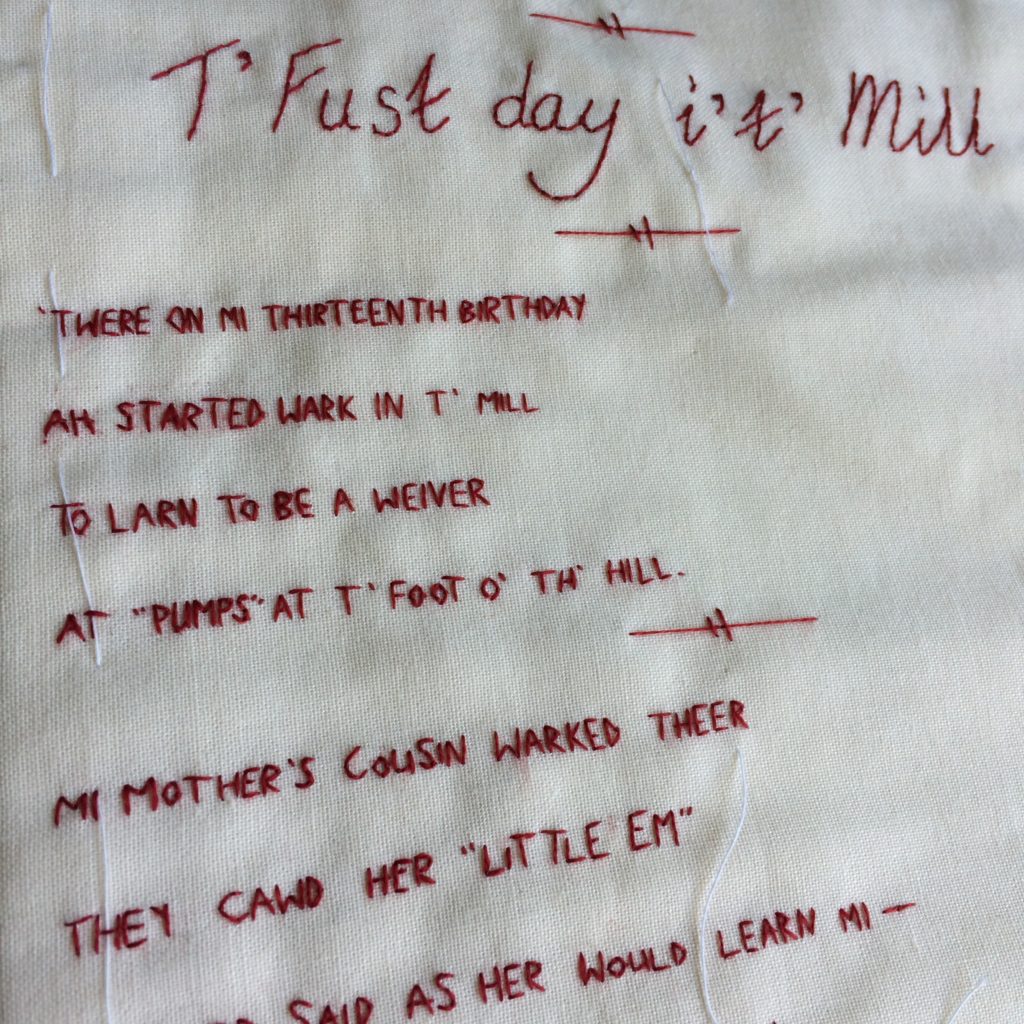 T' Fust day i't' Mill
'TWERE ON MI THIRTEENTH BIRTHDAY
AH STARTED WARK IN T' MILL
TO LARN TO BE A WEIVER
AT "PUMPS" AT T' FOOT O' TH' HILL.
MI MOTHER'S COUSIN WARKED THEER
THEY CAWD HER "LITTLE EM"
SAID AS HER WOULD LEARN MI —